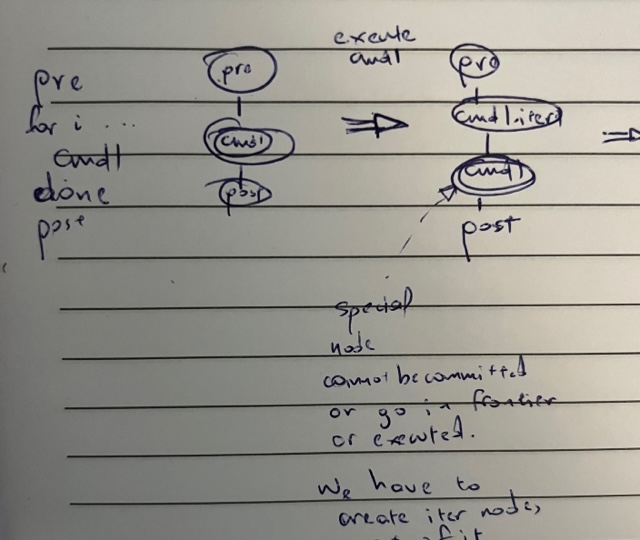 pre
for i ...
cmd1
done
post
pre
cmd1
post
execute
cmd1
pre
cmd1.iter1
cmd1
post
special
node
cannot be committed
or go in frontier
or executed.
We have to
create iter node,